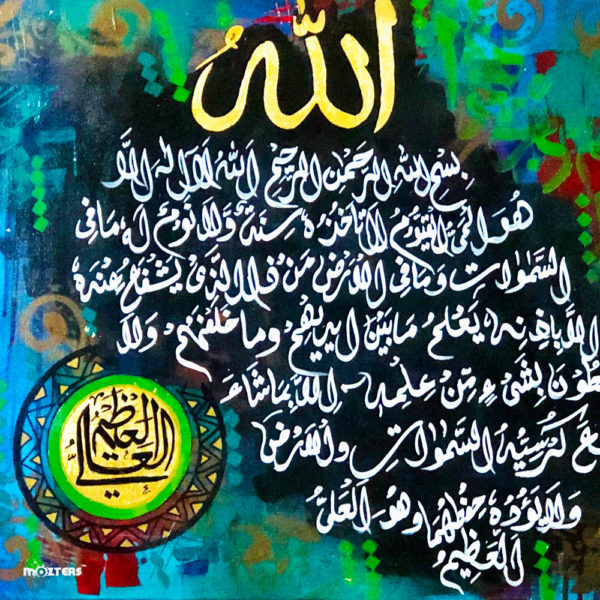 الله
بسم الله الرحمن الرحيم الله لا اله الا
هو الحي القيوم لا تاخذه سنة ولا نوم له ما في
السموات وما في الارض من ذا الذي يشفع عنده
الا باذنه يعلم ما بين ايديهم وما خلفهم ولا
بشيء من علمه الا بما شاء
كرسيه السموات والارض
ولا يؤده حفظهما وهو العلي
العظيم
العلي العظيم
MOZTERS